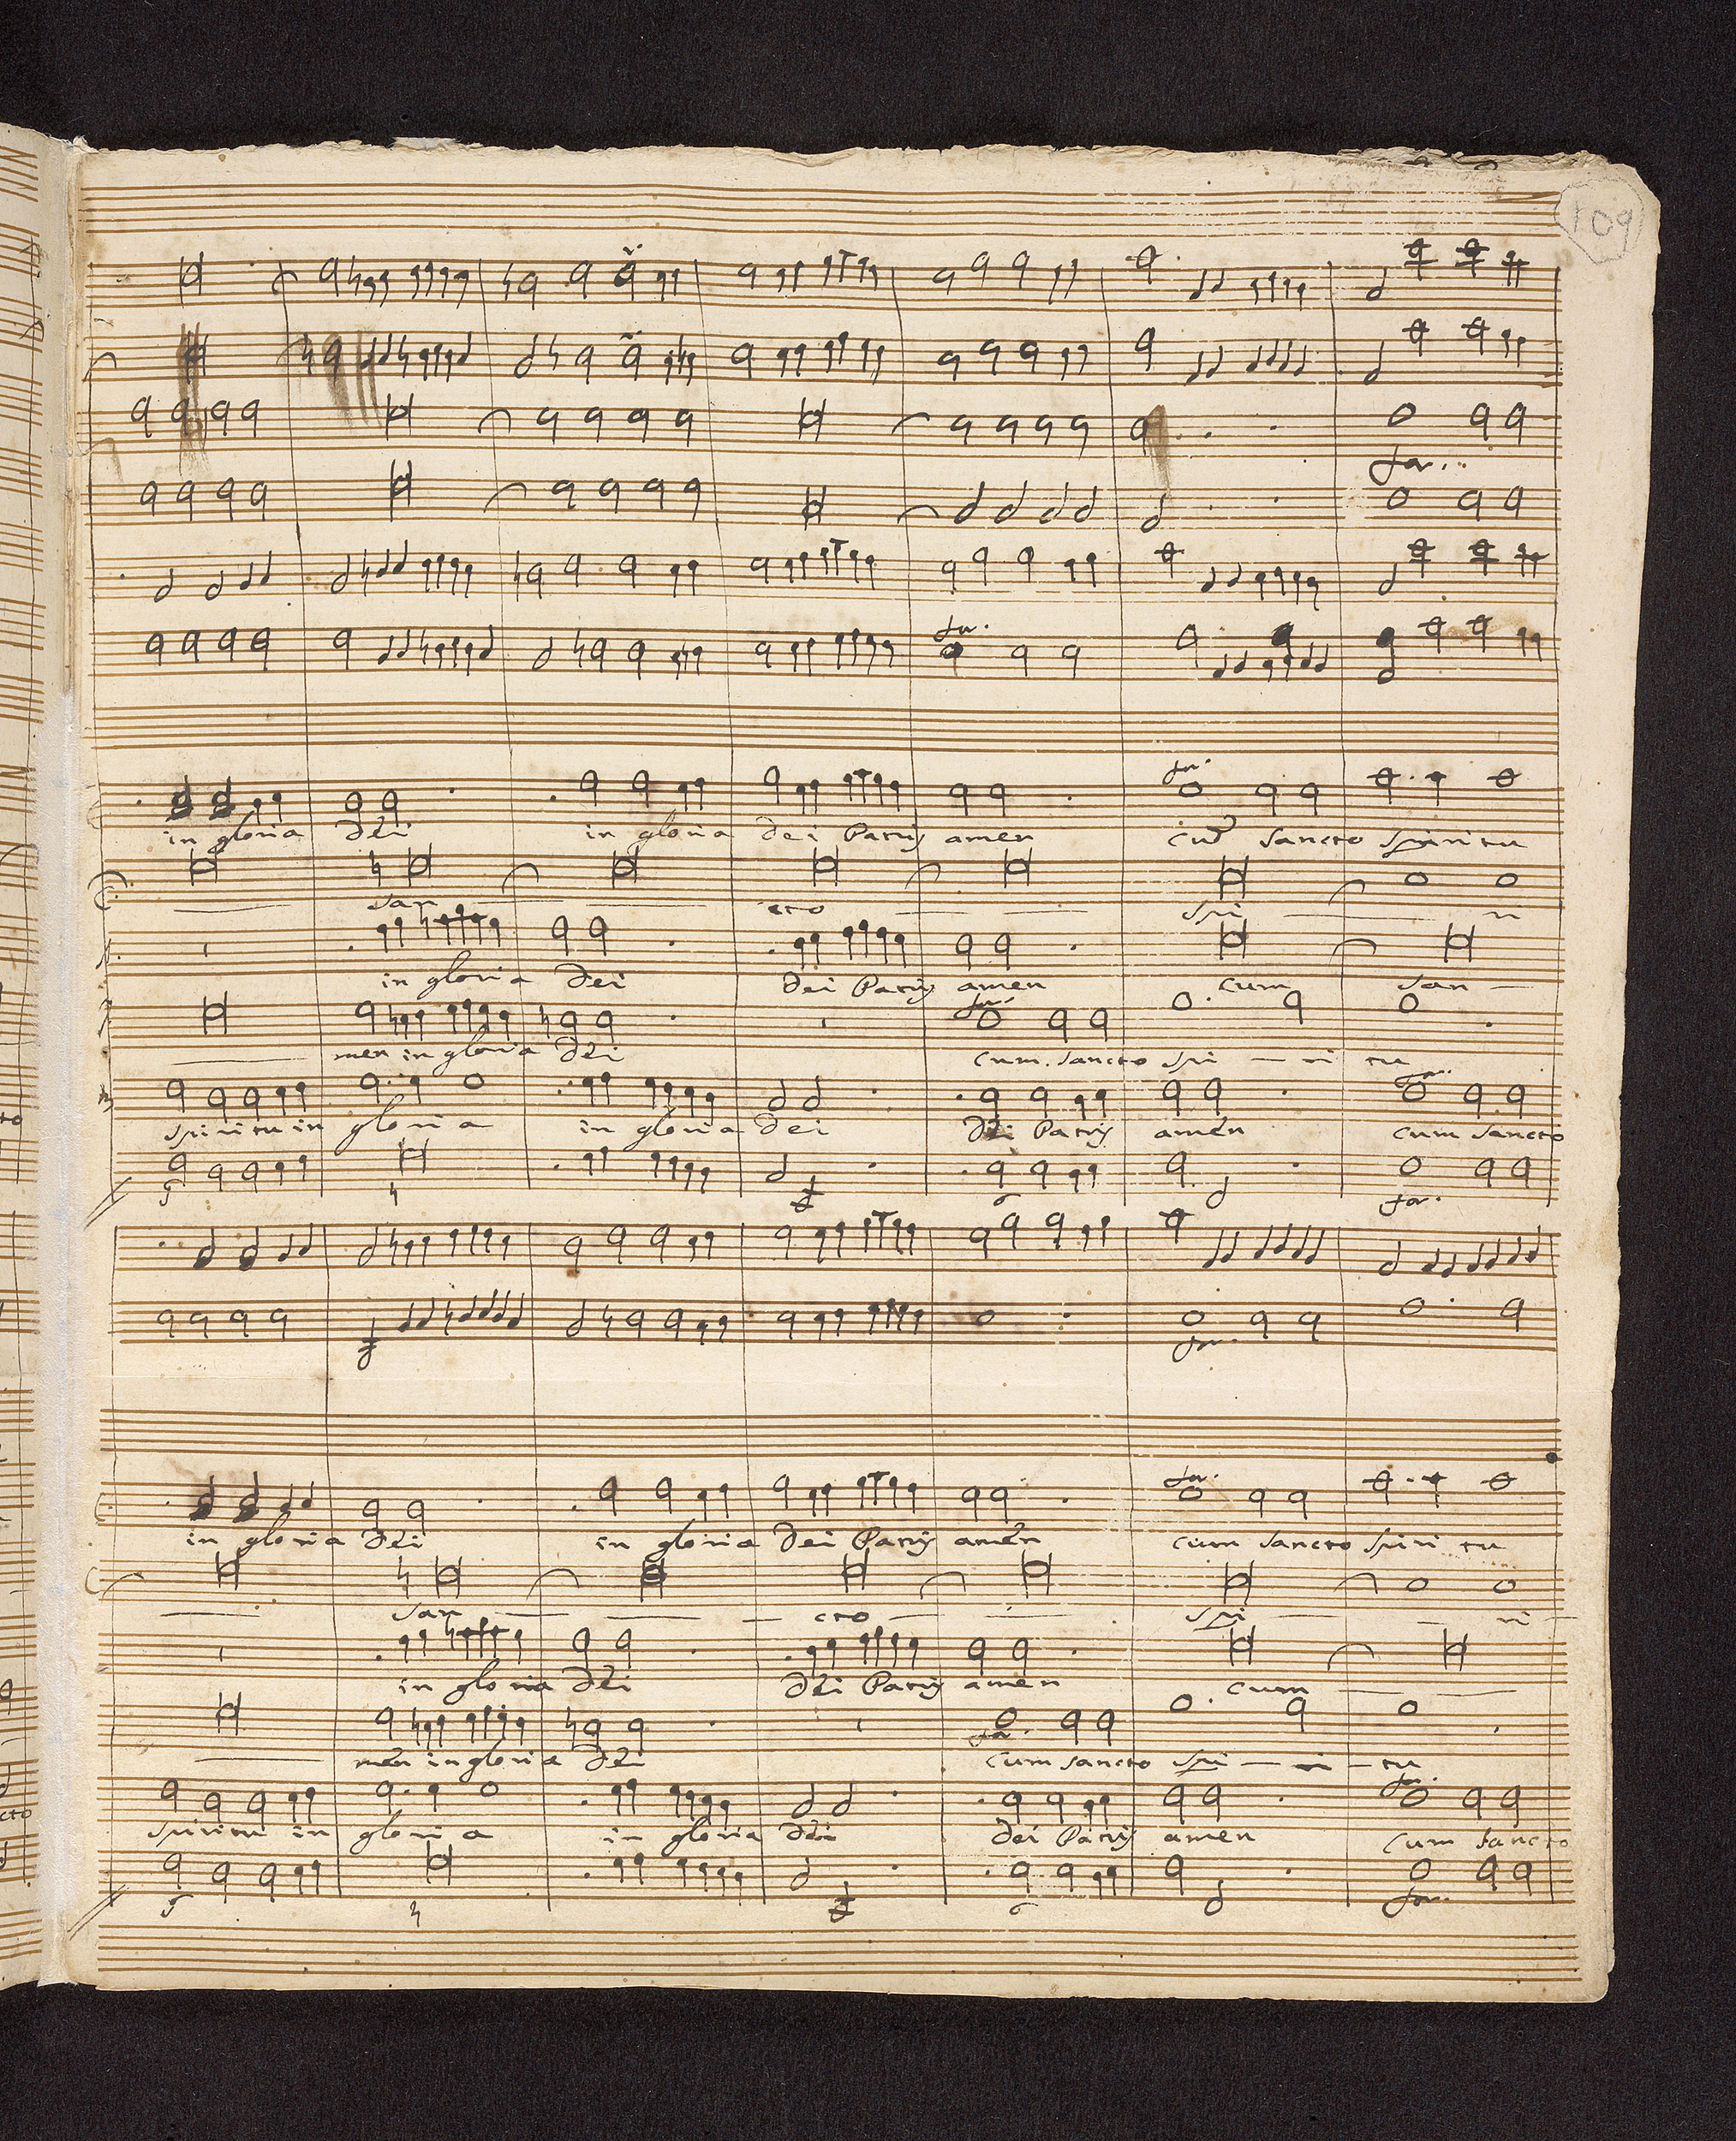 109
for.
for.
for.
in gloria dei in gloria dei Patris amen cum sancto spiritu
san cto spi ri
in gloria dei dei Patris amen cum san
for.
men in gloria dei cum sancto spi ri tu
for.
spiritu in gloria in gloria dei dei Patris amen cum sancto
5 4 6 for.
for.
for.
in gloria dei in gloria dei Patris amen cum sancto spiri tu
san cto spi ri
in gloria dei dei Patris amen cum
for.
men in gloria dei cum sancto spi ri tu
for.
spiritu in gloria in gloria dei dei Patris amen cum sancto
5 4 6 for.